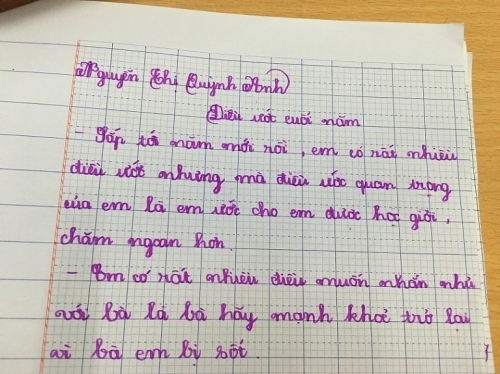 Nguyễn Thị Quỳnh Anh
Điều ước cuối năm
- Sắp tới năm mới rồi, em có rất nhiều
điều ước nhưng mà điều ước quan trọng
của em là em ước cho em được học giỏi,
chăm ngoan hơn.
- Em có rất nhiều điều muốn nhắn nhủ
với bà là bà hãy mạnh khoẻ trở lại
vì bà em bị sốt.